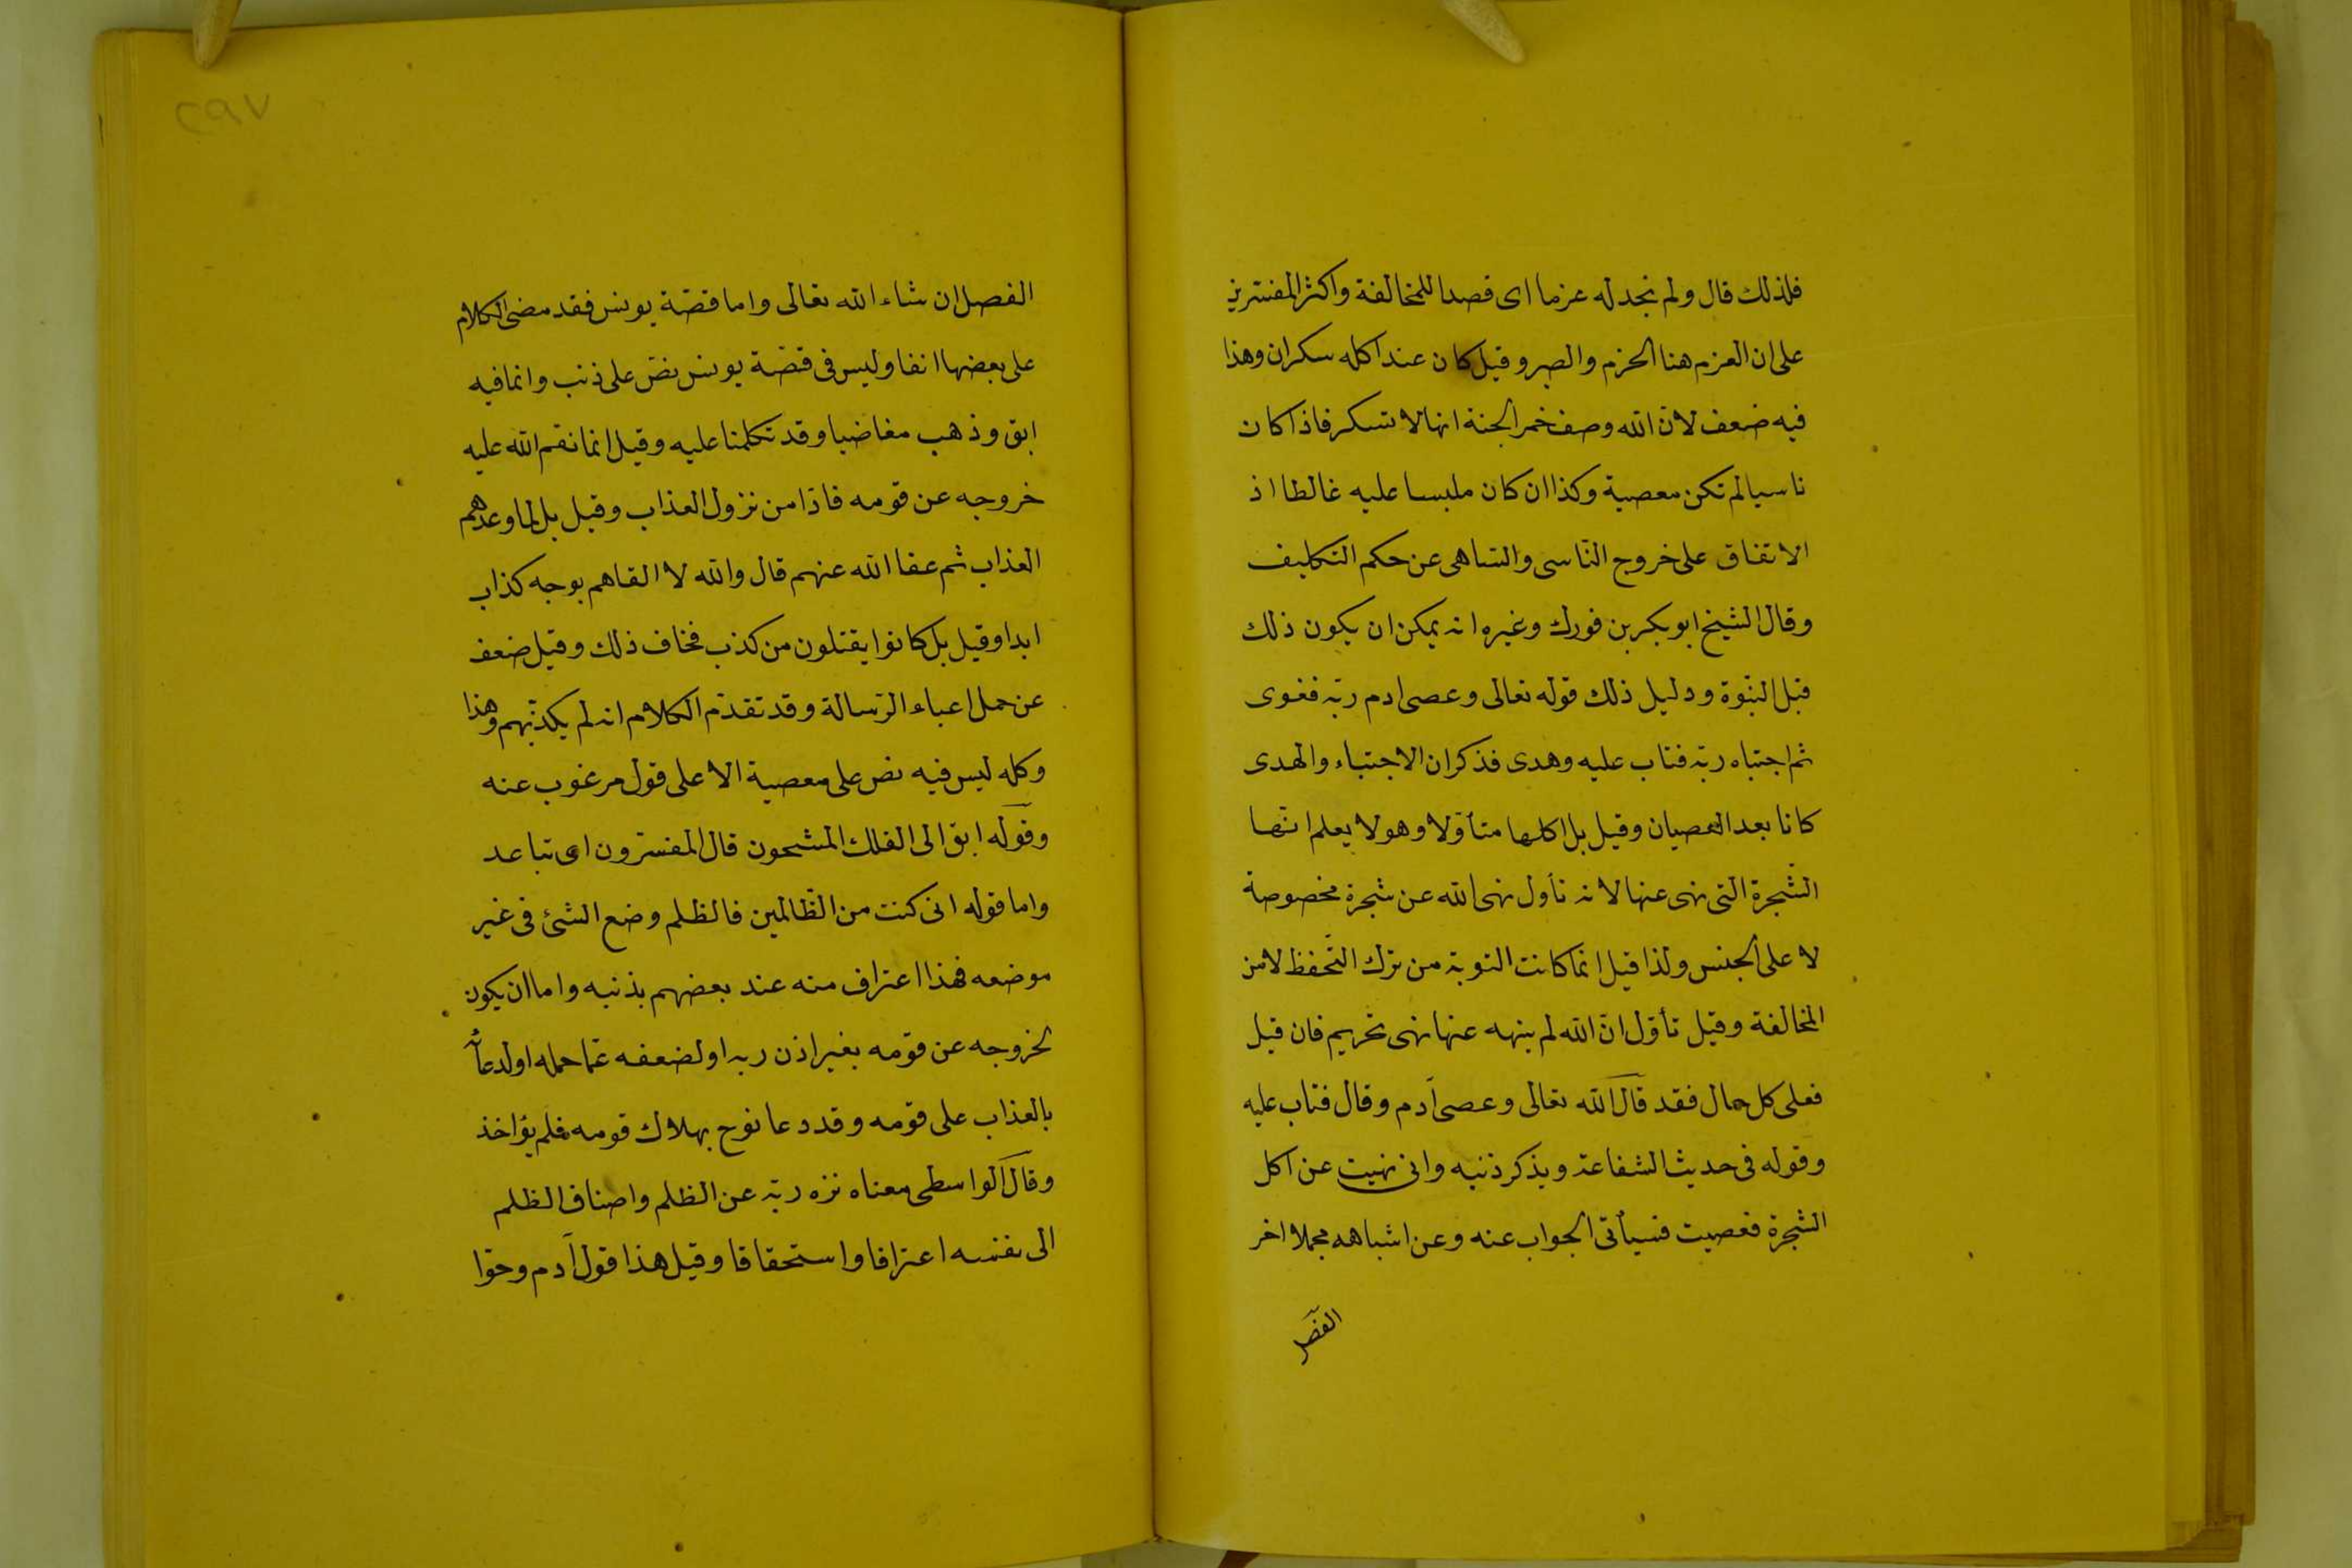 فلذلك قال ولم نجد له عزما اى قصدا للمخالفة واكثر المفسرين
على ان العزم هنا الحزم والصبر وقيل كان عند اكله سكران وهذا
فيه ضعف لانّ الله وصف خمر الجنة انها لا تسكر فاذا كان
ناسيا لم تكن معصية وكذا ان كان ملبسا عليه غالطا اذ
الاتفاق على خروج النّاسى والسّاهى عن حكم التكليف
وقال الشيخ ابو بكر بن فورك وغيره انه يمكن ان يكون ذلك
قبل النبّوة ودليل ذلك قوله تعالى وعصى ادم ربّه فغوى
ثم اجتباه ربّه فتاب عليه وهدى فذكر ان الاجتباء والهدى
كانا بعد العصيان وقيل بل اكلها متأوّلا وهو لا يعلم انّها
الشّجرة التى نهى عنها لانه تأول نهى الله عن شجرة مخصوصة
لا على الجنس ولذا قيل انما كانت التوبة من ترك التّحفظ لا من
المخالفة وقيل تأوّل انّ الله لم ينهه عنها نهى تحريم فان قيل
فعلى كل حال فقد قال الله تعالى وعصى آدم وقال فتاب عليه
وقوله فى حديث الشفاعة ويذكر ذنبه وانى نهيت عن اكل
الشّجرة فعصيت فسيأتى الجواب عنه وعن اشباهه مجملا اخر
الفصل
٢٩٧
الفصل ان شاء الله تعالى واما قصّة يونس فقد مضى الكلام
على بعضها انفا وليس فى قصّة يونس نصّ على ذنب وانما فيه
ابق وذهب مغاضبا وقد تكلمنا عليه وقيل انما نقم الله عليه
خروجه عن قومه فارّا من نزول العذاب وقيل بل لما وعدهم
العذاب ثم عفا الله عنهم قال والله لا القاهم بوجه كذاب
ابدا وقيل بل كانوا يقتلون من كذب فخاف ذلك وقيل ضعف
عن حمل اعباء الرّسالة وقد تقدّم الكلام انه لم يكذّبهم وهذا
وكله ليس فيه نص على معصية الا على قول مرغوب عنه
وقوله ابق الى الفلك المشحون قال المفسّرون اى تباعد
واما قوله انى كنت من الظّالمين فالظلم وضع الشئ فى غير
موضعه فهذا اعتراف منه عند بعضهم بذنبه واما ان يكون
لخروجه عن قومه بغير اذن ربه او لضعفه عمّا حمله او لدعائه
بالعذاب على قومه وقد دعا نوح بهلاك قومه فلم يؤاخذ
وقال الواسطى معناه نزه ربّه عن الظلم واضاف الظلم
الى نفسه اعترافا واستحقاقا وقيل هذا قول آدم وحوّا